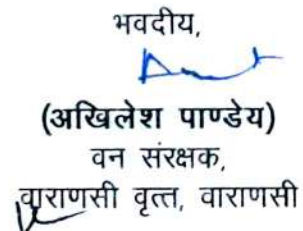 भवदीय,
(अखिलेश पाण्डेय)
वन संरक्षक,
वाराणसी वृत्त, वाराणसी